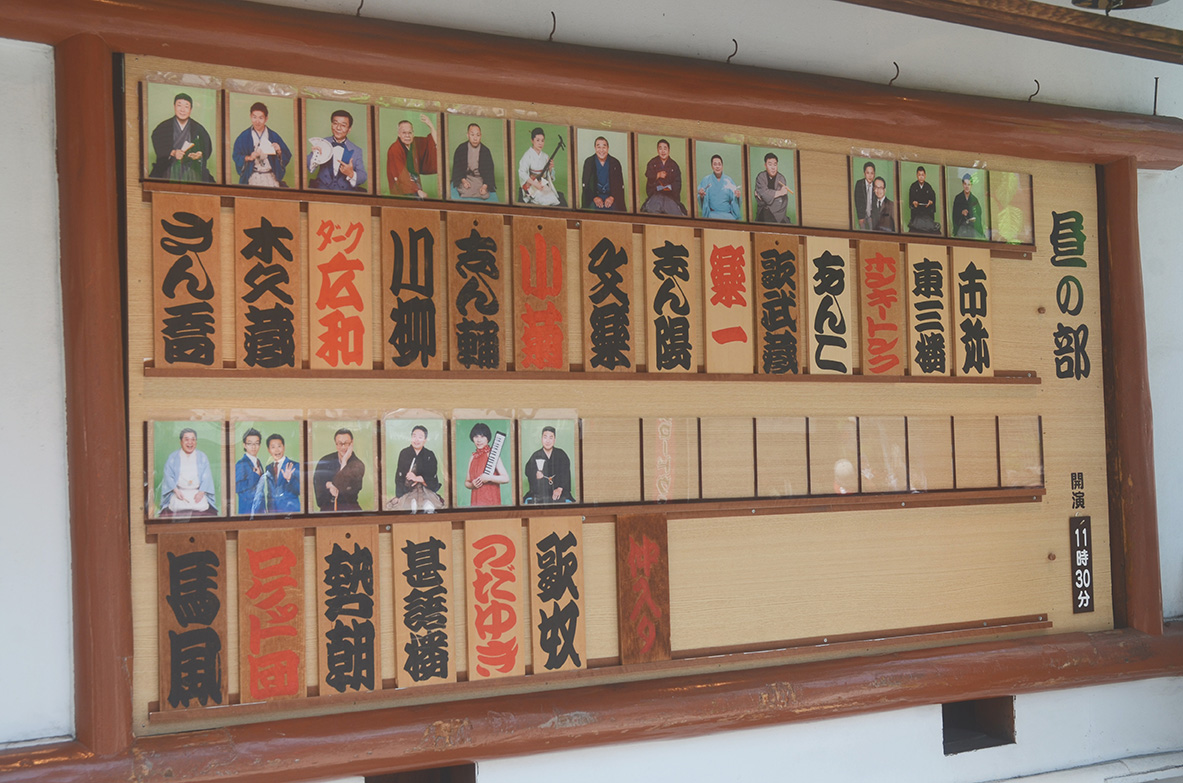 昼の部
開演
11時30分
市弥
東三楼
ホンキートンク
歌武蔵
楽一
志ん陽
文楽
小菊
志ん輔
川柳
ダーク広和
木久蔵
さん喬
仲入り
歌奴
のだゆき
甚語楼
勢朝
ロケット団
馬風